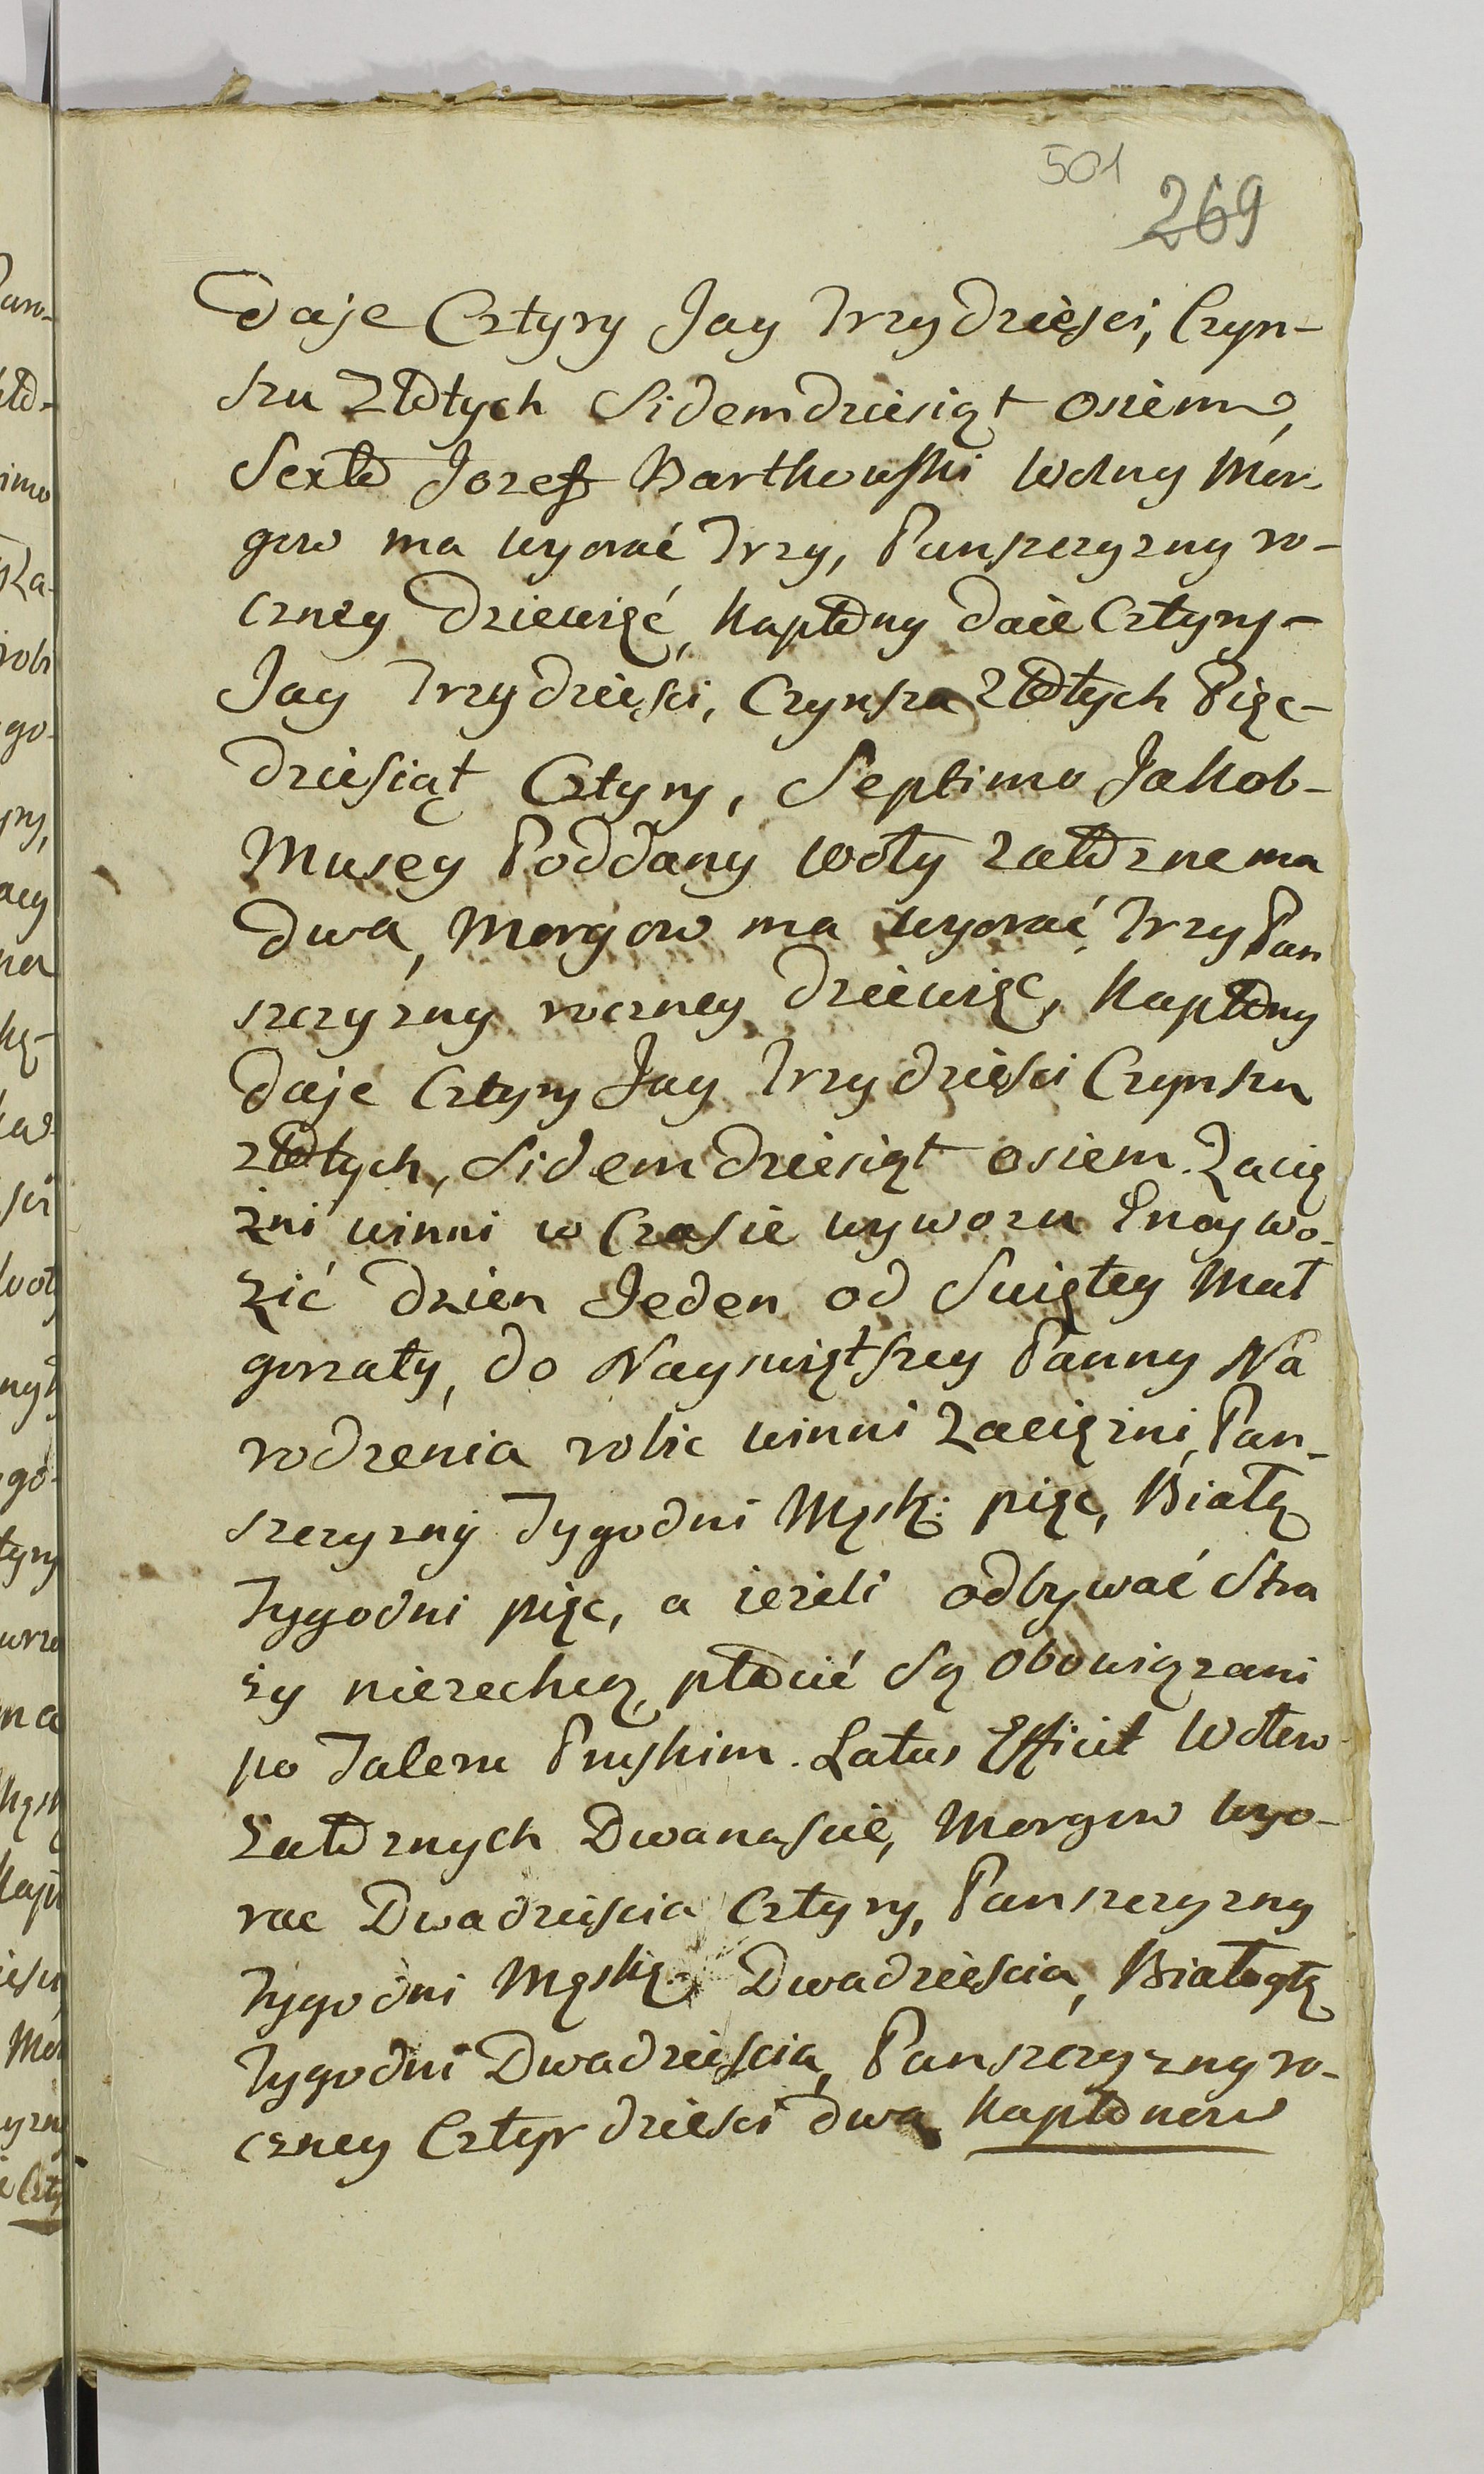 501
269
daje Cztyry Jay Trzydzieści, Czyn-
szu Złotych Sidemdziesiąt osiem,
Sexto Jozef Bartkowski wolny Mor-
gow ma wyorać Trzy, Panszczyzny ro-
czney dziewięć, Kapłony daie Cztyry-
Jay Trzydzieści, Czynszu Złotych Pięc-
dziesiąt Cztyry, Septimo Jakob-
Musey Poddany woły załozne ma
dwa, Morgow ma wyorać Trzy Pan
szczyzny roczney dziewięc, Kapłony
daje Cztyry Jay Trzydzieści Czynszu
złotych, Sidemdziesiąt osiem. Zacię
żni winni w Czasie wywozu Gnoy wo-
zić dzien Jeden od Swiętey Mał
gorzaty, do Nayswiętszey Panny Na
rodzenia robic winni Zaciężni, Pan-
szczyzny Tygodni Męsk: pięc, Białą
Tygodni pięc, a ieżeli odbywać Stra
ży niezechcą, płacić Są obowiązani
po Taleru Pruskim. Latus Efficit Wołow
Załoznych Dwanascie, Morgow wyo-
rac Dwadzieścia Cztyry, Panszczyzny
Tygodni Męską Dwadzieścia,
Tygodni Dwadzieścia, Panszczyzny ro-
czney Cztyrdzieści dwa, Kapłonow